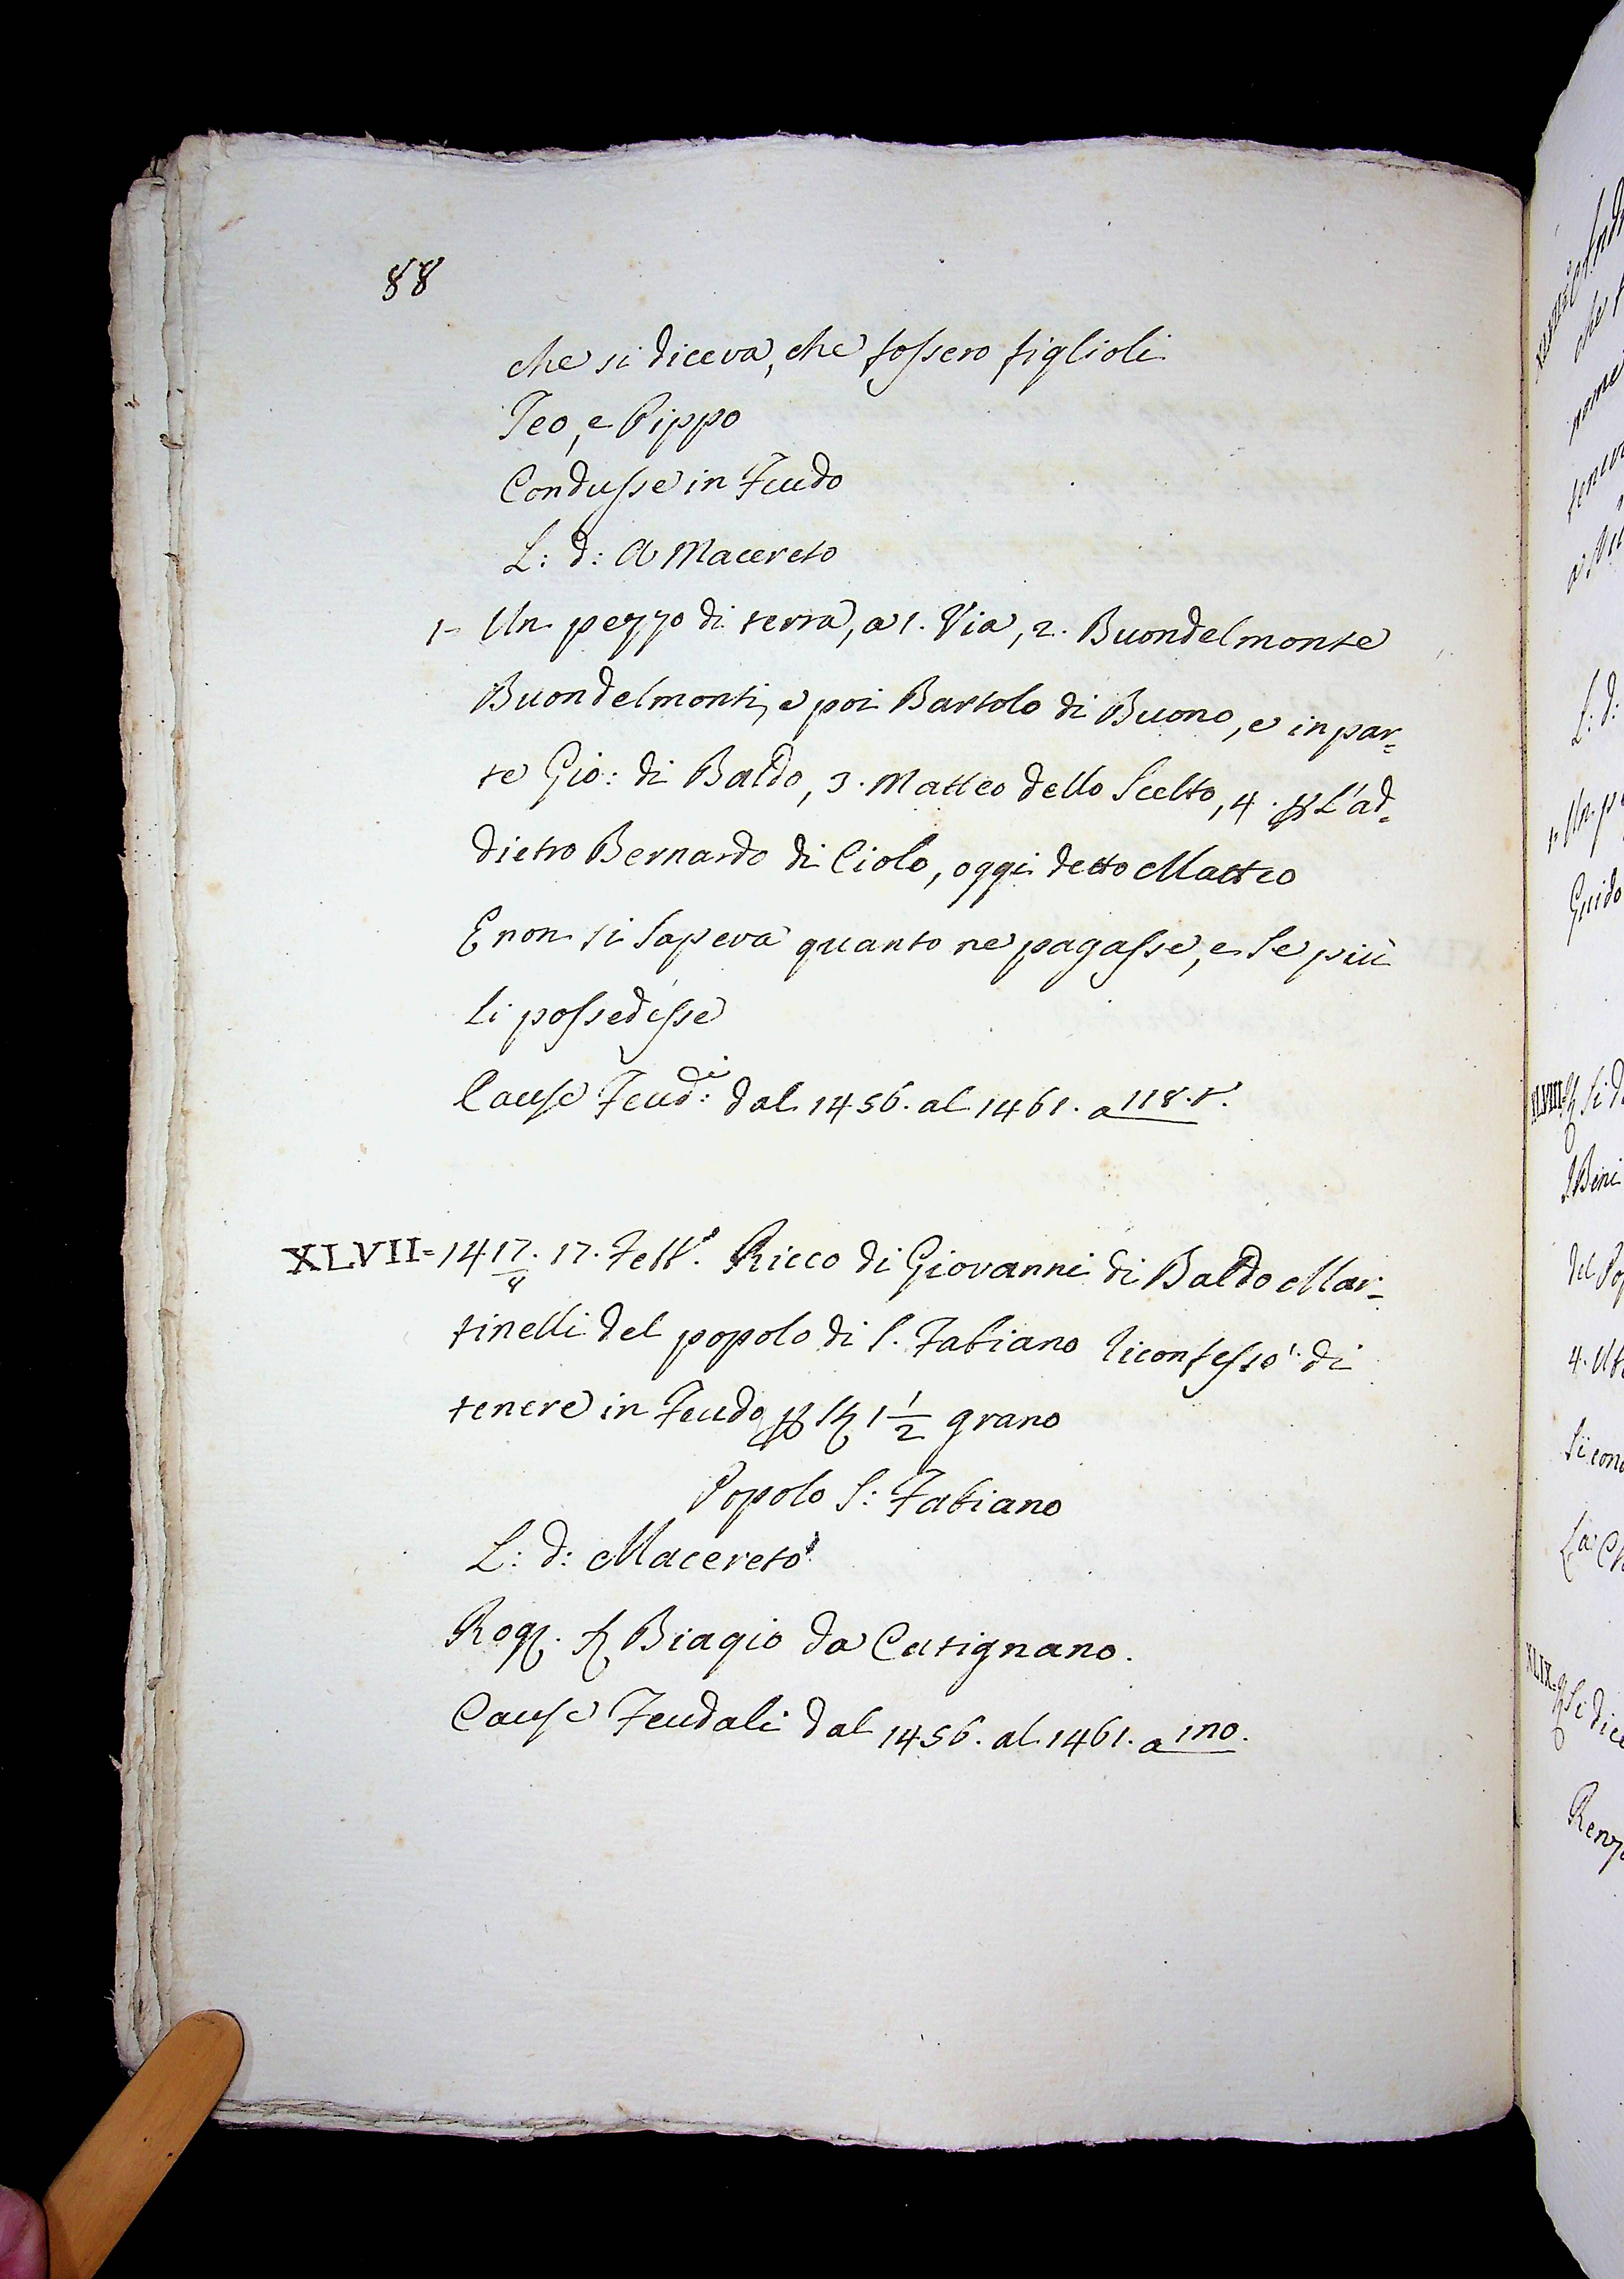 88
che si diceva, che fossero figlioli
Teo, e Pippo
Condusse in Feudo
L: d: A Macereto
1- Un pezzo di terra, a 1. Via, 2. Buondelmonte
Buondelmonti, e poi Bartolo di Buono, e in par-
te Gio: di Baldo, 3. Matteo dello Scelto, 4. p L'ad-
dietro Bernardo di Ciolo, oggi detto Matteo
E non si sapeva quanto ne pagasse, e se più
li possedesse
Cause Feud:i dal 1456. al 1461. a 118.t.
XLVII= 1417/8. 17. Febb.o Ricco di Giovanni di Baldo Mar-
tinelli del popolo di S. Fabiano si confessò di
tenere in Feudo p 1 1/2 grano
Popolo S: Fabiano
L: d: Macereto
Rog. Biagio da Cutignano.
Cause Feudali dal 1456. al 1461. a
L: d:
1- Un p
Guido
XLVIII= Si d
Beni
del Po
La
XLIX= Si dice